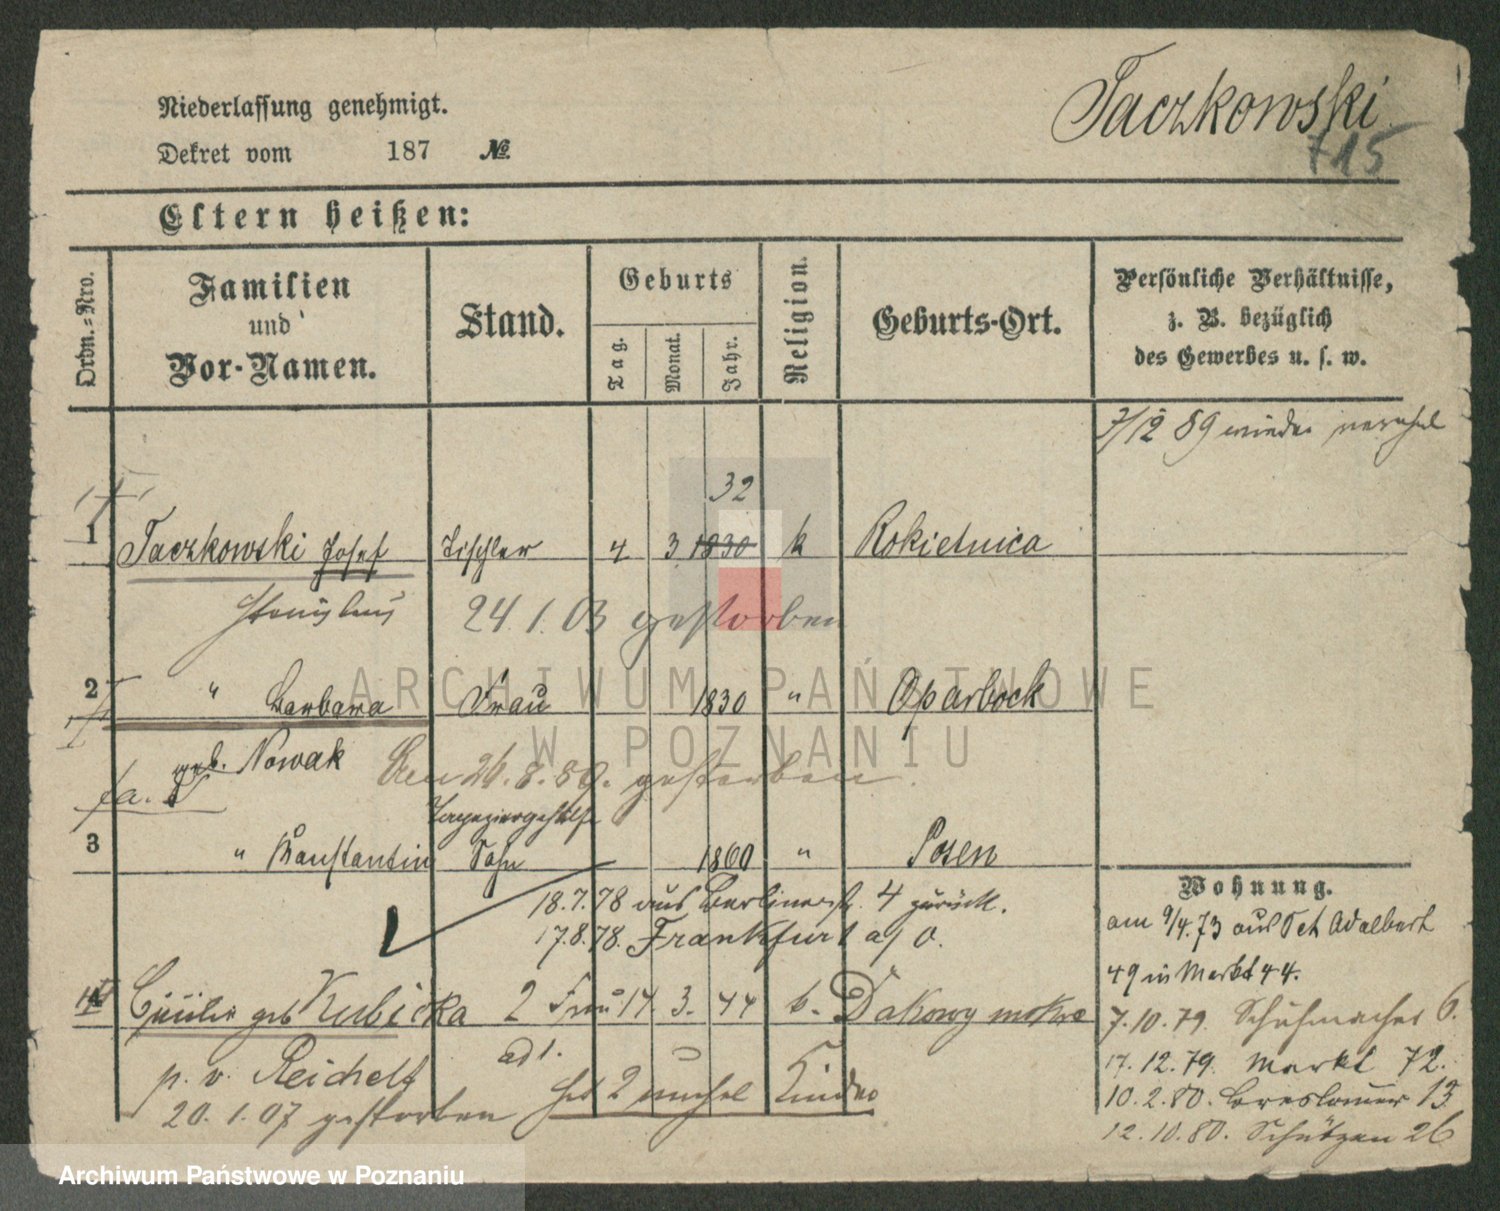 Taczkowski
715
Niederlassung genehmigt.
Dekret vom 187 №
Eltern heißen:
Ordn.-Nro.
Familien
und
Vor-Namen.
Stand.
Geburts
Tag.
Monat.
Jahr.
Religion.
Geburts-Ort.
Persönliche Verhältnisse,
z. B. bezüglich
des Gewerbes u. s. w.
7/12 89
32
1 Taczkowski Josef Tischler 4 3 1830 k Rokietnica
24 1. 03 gestorben
2 " Barbara Frau 1830 " Oparbock
geb. Nowak Den 26.8.89. gestorben
3 " Konstantin Sohn 1860 " Posen
18.7.78 aus Berlinerstr. 4 zurück.
17.8.78. Frankfurt a/O.
geb Kubicka 2 Frau 14. 3. 44 k. Dakowy mokre
ad 1.
p. v. Reichelt
2 Kinder
20. 1. 07 gestorben
Wohnung.
am 9/4.73 aus Set Adalbert
49 in Markt 44.
7.10.79. Schuhmacher 6.
17.12.79. Markt 72.
10.2.80. Breslauer 13
12.10.80. Schützen 26
ARCHIWUM PAŃSTWOWE
W POZNANIU
Archiwum Państwowe w Poznaniu